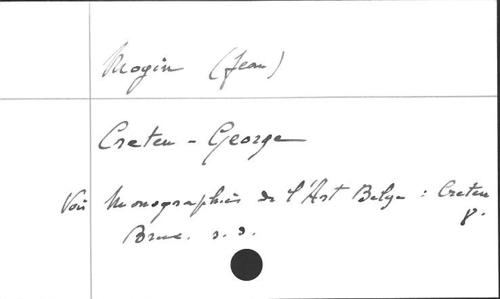 Mogin (Jean)
Creten - George
Voir Monographies de l'Art Belge : Creten
8.
Brux. s. d.